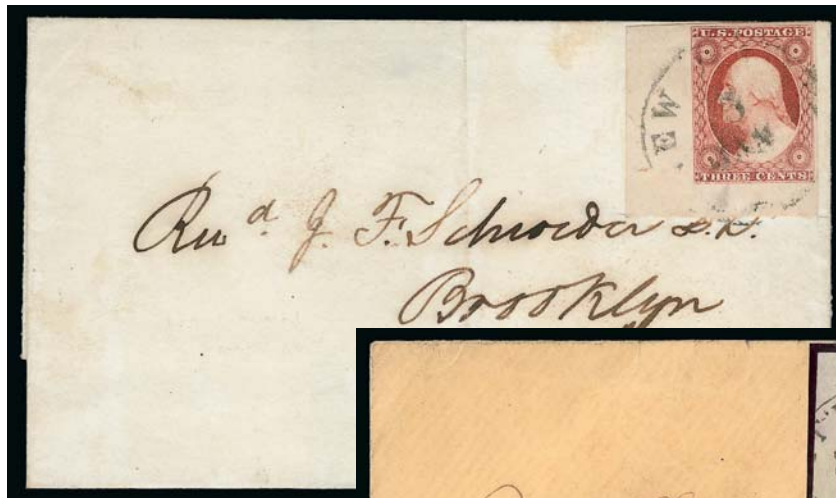 U.S. POSTAGE
EW
3
THREE CENTS
Revd. J. F. Schroeder D.D.
Brooklyn